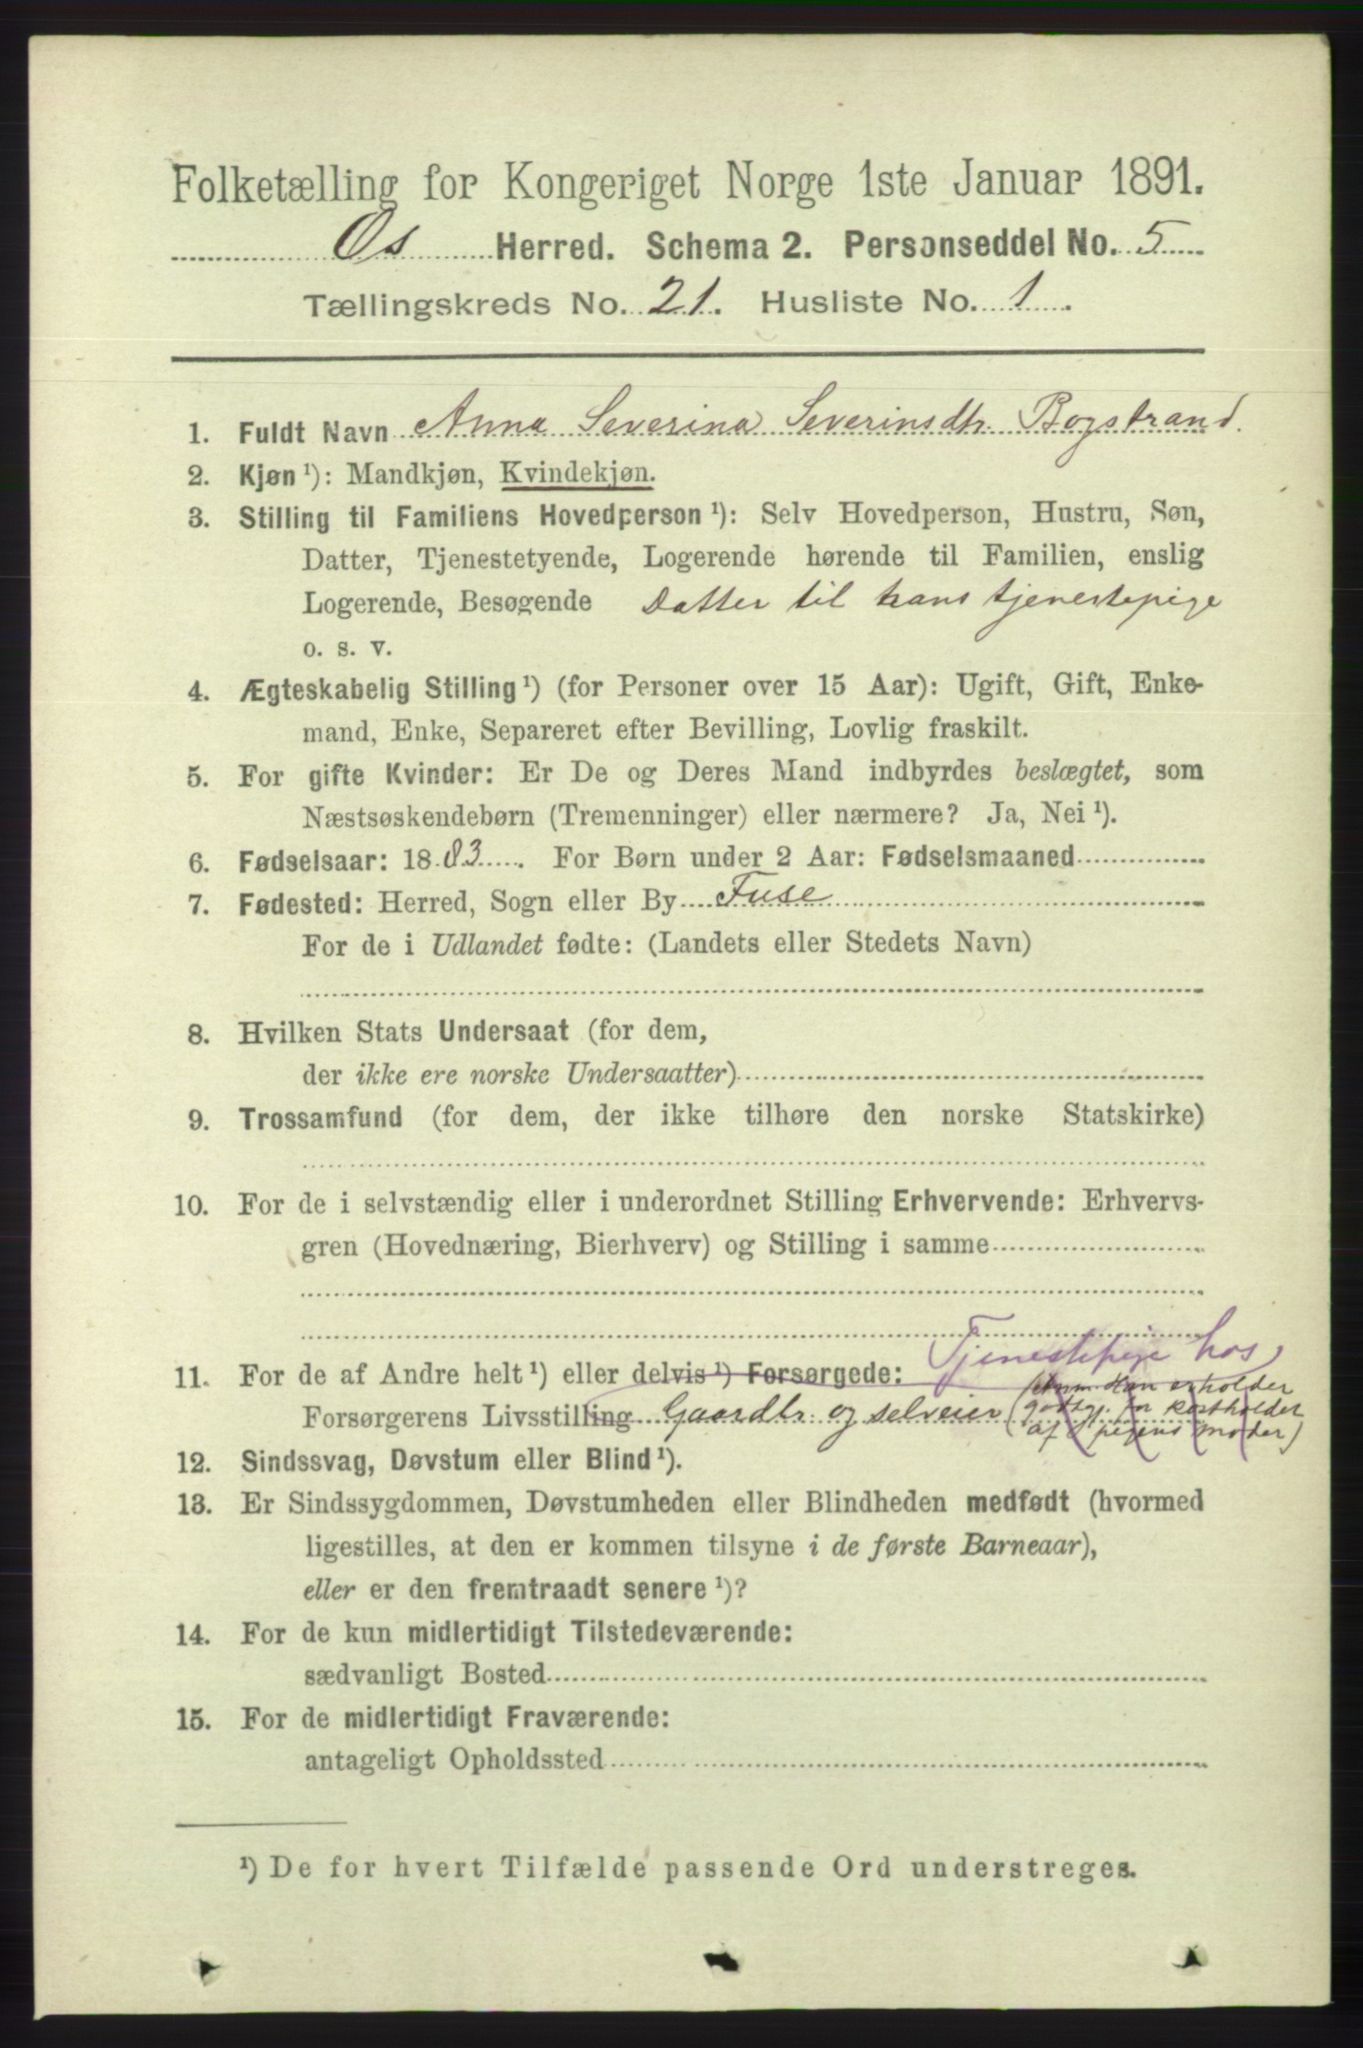 Folketælling for Kongeriget Norge 1ste Januar 1891.
Os Herred. Schema 2. Personseddel No. 5
Tællingskreds No. 21. Husliste No. 1.
1. Fuldt Navn Anna Severina Severinsdtr. Bogstrand.
2. Kjøn ¹): Mandkjøn, Kvindekjøn.
3. Stilling til Familiens Hovedperson ¹): Selv Hovedperson, Hustru, Søn,
Datter, Tjenestetyende, Logerende hørende til Familien, enslig
Logerende, Besøgende Datter til hans tjenestepige
o. s. v.
4. Ægteskabelig Stilling ¹) (for Personer over 15 Aar): Ugift, Gift, Enke-
mand, Enke, Separeret efter Bevilling, Lovlig fraskilt.
5. For gifte Kvinder: Er De og Deres Mand indbyrdes beslægtet, som
Næstsøskendebørn (Tremenninger) eller nærmere? Ja, Nei ¹).
6. Fødselsaar: 1883. For Børn under 2 Aar: Fødselsmaaned
7. Fødested: Herred, Sogn eller By Fuse
For de i Udlandet fødte: (Landets eller Stedets Navn)
8. Hvilken Stats Undersaat (for dem,
der ikke ere norske Undersaatter)
9. Trossamfund (for dem, der ikke tilhøre den norske Statskirke)
10. For de i selvstændig eller i underordnet Stilling Erhvervende: Erhvervs-
gren (Hovednæring, Bierhverv) og Stilling i samme
Tjenestepige hos
11. For de af Andre helt ¹) eller delvis ¹) Forsørgede:
Forsørgerens Livsstilling Gaardbr. og selveier (Anm. Han erholder
godtgj. for kostholder
af pigens moder)
12. Sindssvag, Døvstum eller Blind ¹).
13. Er Sindssygdommen, Døvstumheden eller Blindheden medfødt (hvormed
ligestilles, at den er kommen tilsyne i de første Barneaar),
eller er den fremtraadt senere ¹)?
14. For de kun midlertidigt Tilstedeværende:
sædvanligt Bosted
15. For de midlertidigt Fraværende:
antageligt Opholdssted
¹) De for hvert Tilfælde passende Ord understreges.